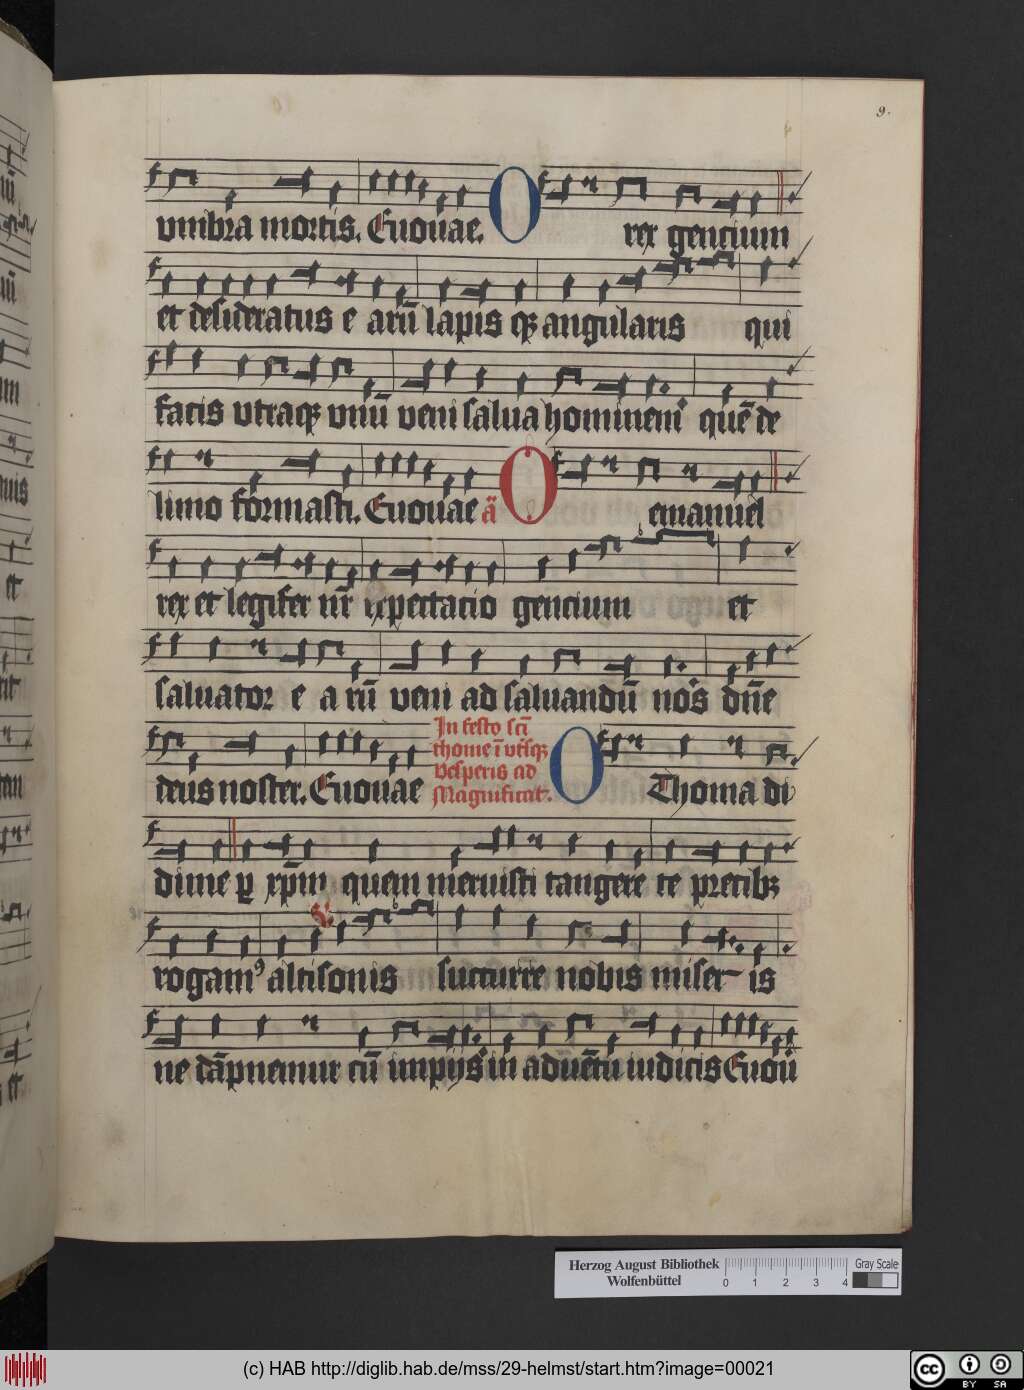 9.
vmbra mortis. Euouae. O rex gencium
et desideratus e arū lapis qꝫ angularis qui
facis vtraqꝫ vnū veni salua hominem quē de
limo formasti. Euouae aͣ O emanuel
rex et legifer nr̄ expectacio gencium et
saluator e a rū veni ad saluandū nos dn̄e
deus noster. Euouae O Thoma di
In festo scī
thome ī vtsqꝫ
vesperis ad
Magnificat.
dime ꝑ xp̄m quem meruisti tangere te precibꝫ
rogamꝰ altisonis succurre nobis miser is
ne dāpnemur cū impijs in aduētu iudicis Euou
Herzog August Bibliothek
Wolfenbüttel
0 1 2 3 4
Gray Scale
(c) HAB http://diglib.hab.de/mss/29-helmst/start.htm?image=00021
cc BY SA